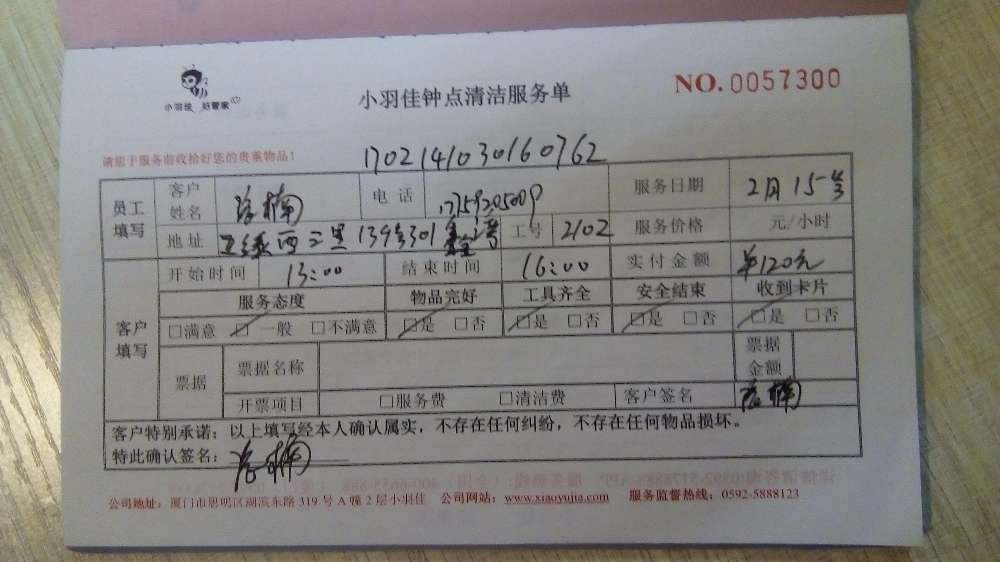 小羽佳 好管家
小羽佳钟点清洁服务单
NO. 0057300
请您于服务前收拾好您的贵重物品!
170214103016 0762
员工填写 客户姓名 楠 电话 17759205009 服务日期 2月15号
地址 西二里139号301 工号 2102 服务价格 元/小时
客户填写 开始时间 13:00 结束时间 16:00 实付金额 ¥120元
服务态度 物品完好 工具齐全 安全结束 收到卡片
□满意 □一般 □不满意 □是 □否 □是 □否 □是 □否 □是 □否
票据 票据名称 票据金额
开票项目 □服务费 □清洁费 客户签名 楠
客户特别承诺：以上填写经本人确认属实，不存在任何纠纷，不存在任何物品损坏。
特此确认签名： 楠
公司地址：厦门市思明区湖滨东路 319 号 A 幢 2 层小羽佳 公司网站：www.xiaoyujia.com 服务监督热线：0592-5888123